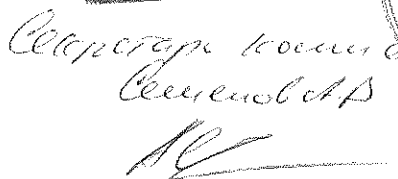 Секретарь комис
Семенов А.В